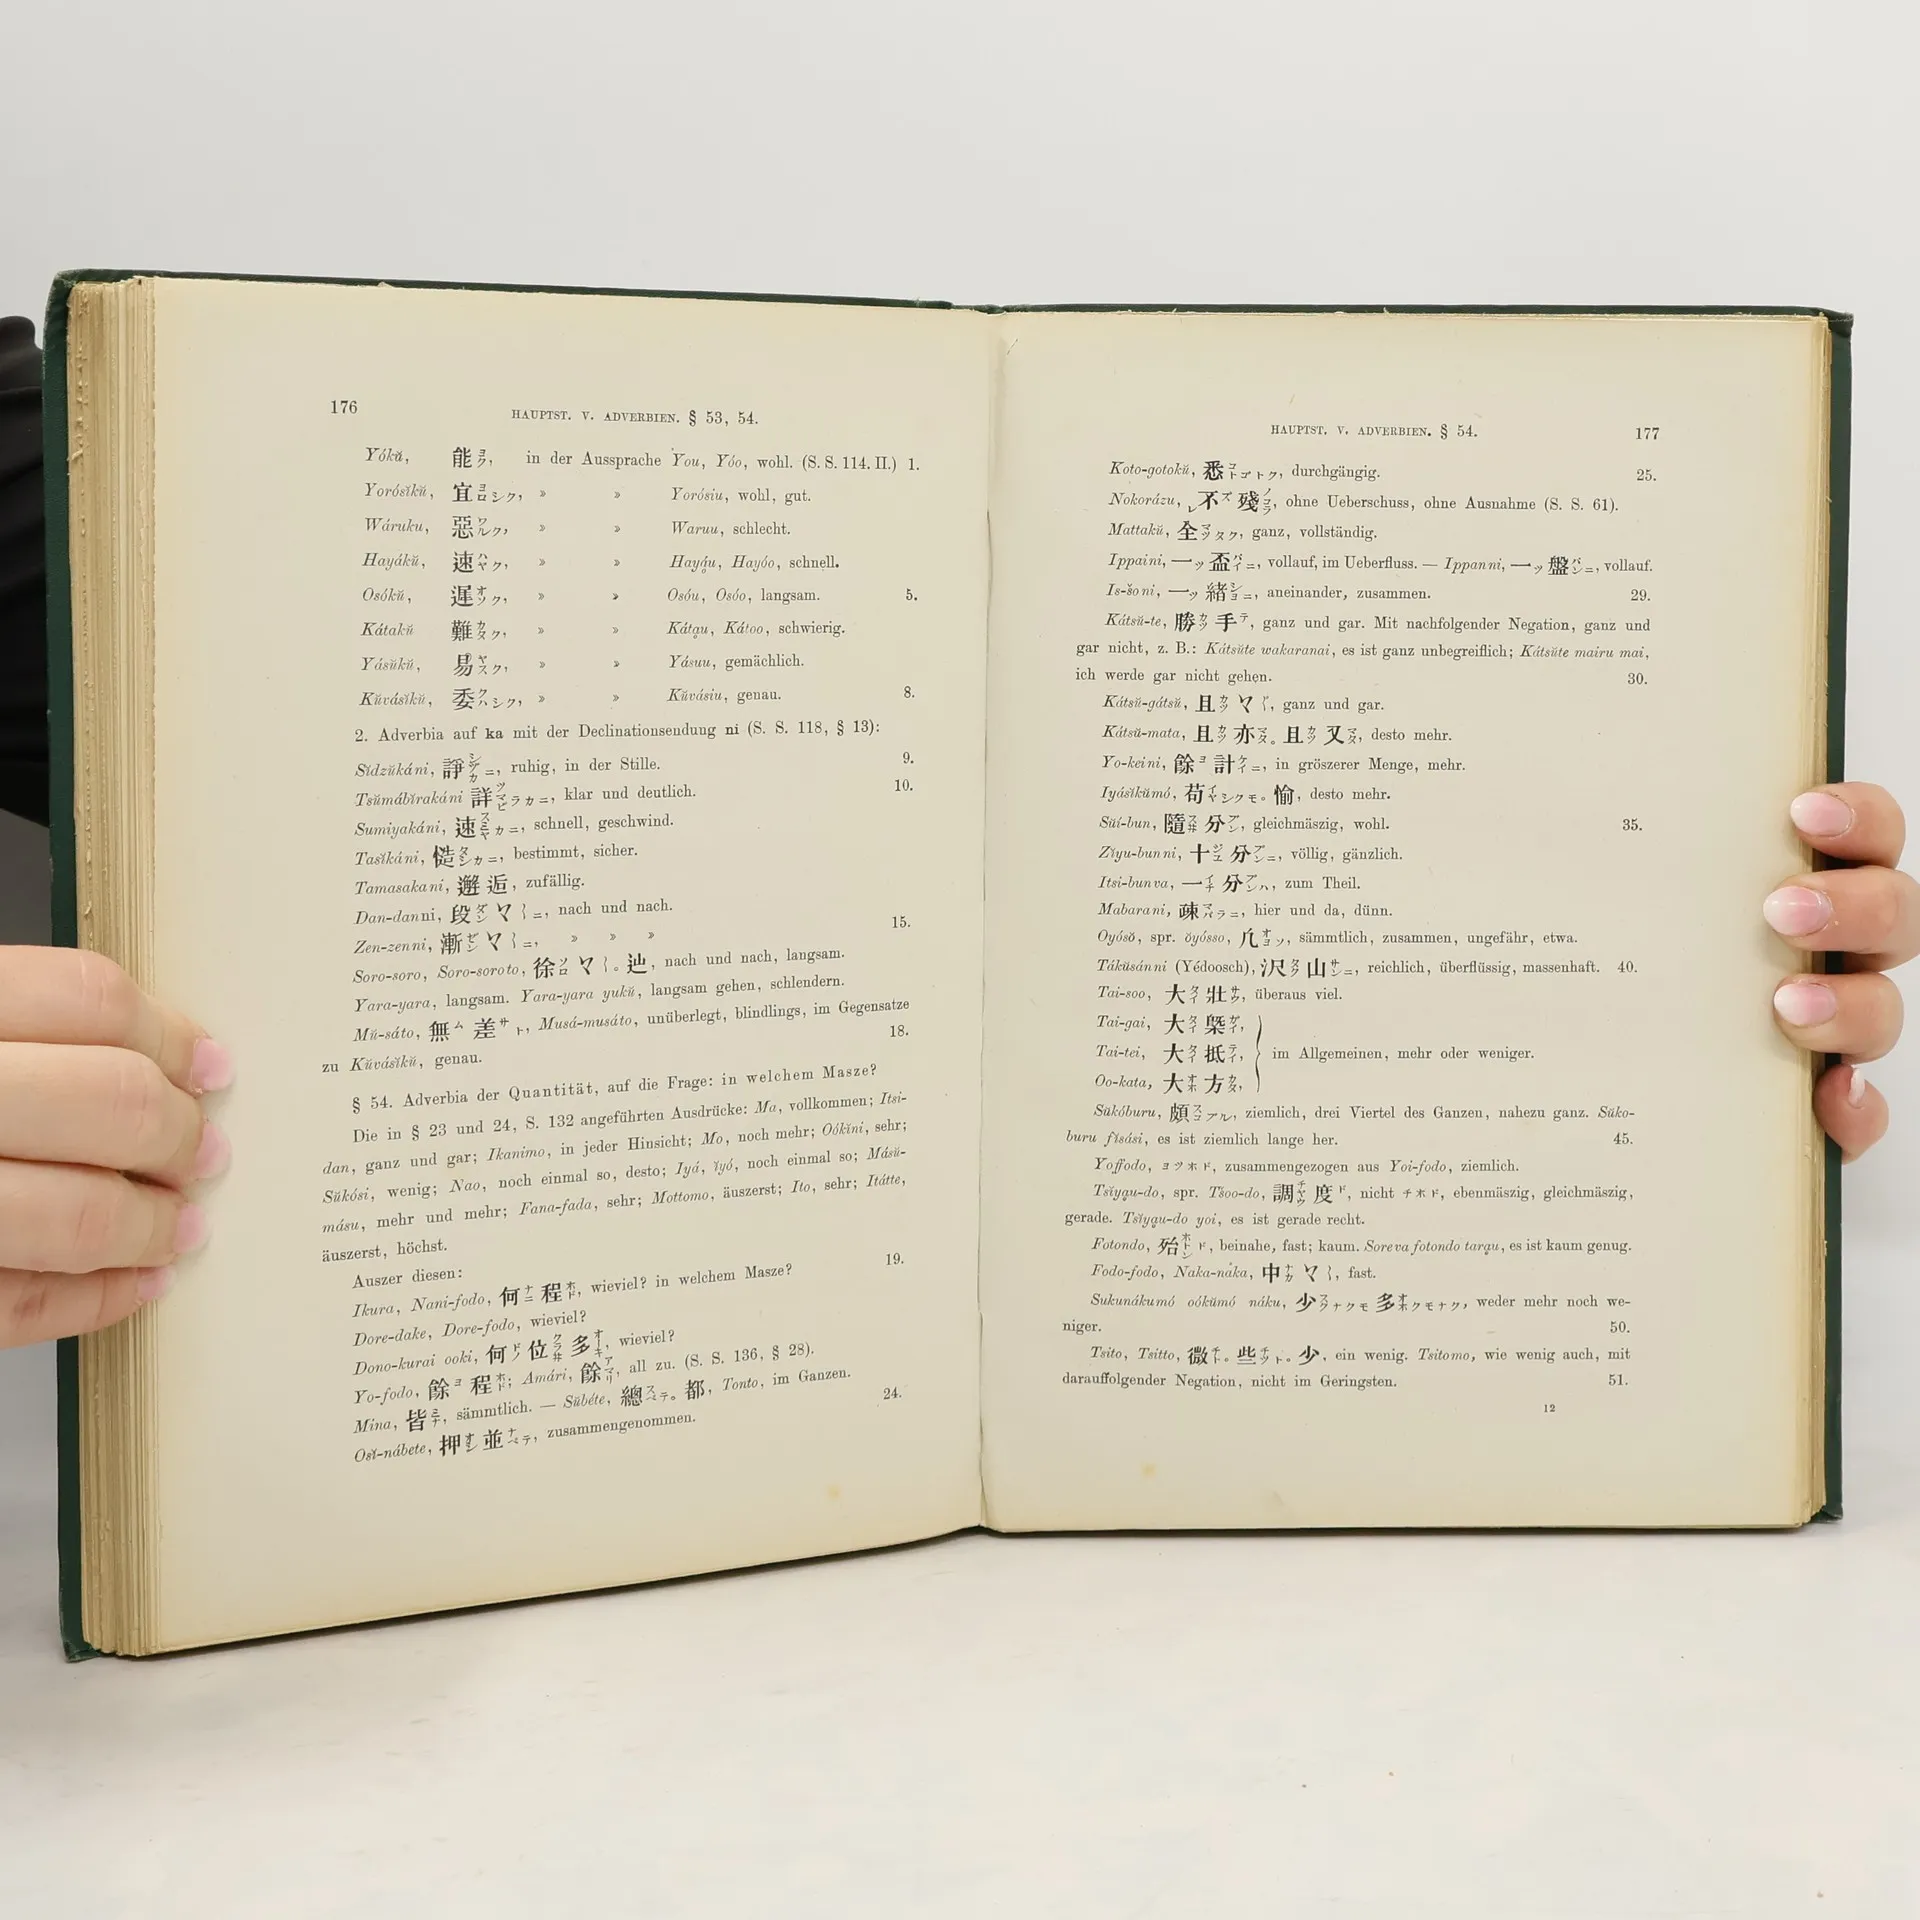 176
HAUPTST. V. ADVERBIEN. § 53, 54.
Yókŭ, 能ヨク, in der Aussprache You, Yóo, wohl. (S. S. 114. II.) 1.
Yorósĭkŭ, 宜ヨロシク, » » Yorósiu, wohl, gut.
Wáruku, 惡ワルク, » » Waruu, schlecht.
Hayákŭ, 速ハヤク, » » Hayáu, Hayóo, schnell.
Osókŭ, 遲オソク, » » Osóu, Osóo, langsam. 5.
Kátakŭ 難カタク, » » Kátau, Kátoo, schwierig.
Yásŭkŭ, 易ヤスク, » » Yásuu, gemächlich.
Kŭvásĭkŭ, 委クハシク, » » Kŭvásiu, genau. 8.
2. Adverbia auf ka mit der Declinationsendung ni (S. S. 118, § 13):
Sĭdzŭkáni, 諍シヅカニ, ruhig, in der Stille. 9.
Tsŭmábĭrakáni 詳ツマビラカニ, klar und deutlich. 10.
Sumiyakáni, 速スミヤカニ, schnell, geschwind.
Tasĭkáni, 慥タシカニ, bestimmt, sicher.
Tamasakani, 邂逅, zufällig.
Dan-danni, 段ダン〻〳ニ, nach und nach.
Zen-zenni, 漸ゼン〻〳ニ, » » » 15.
Soro-soro, Soro-soroto, 徐ソロ〻〳。辿, nach und nach, langsam.
Yara-yara, langsam. Yara-yara yukŭ, langsam gehen, schlendern.
Mŭ-sáto, 無ム差サト, Musá-musáto, unüberlegt, blindlings, im Gegensatze
zu Kŭvásĭkŭ, genau. 18.
§ 54. Adverbia der Quantität, auf die Frage: in welchem Masze?
Die in § 23 und 24, S. 132 angeführten Ausdrücke: Ma, vollkommen; Itsi-
dan, ganz und gar; Ikanimo, in jeder Hinsicht; Mo, noch mehr; Oókĭni, sehr;
Sŭkósi, wenig; Nao, noch einmal so, desto; Iyá, ĭyó, noch einmal so; Másŭ-
másu, mehr und mehr; Fana-fada, sehr; Mottomo, äuszerst; Ito, sehr; Itátte,
äuszerst, höchst.
Auszer diesen: 19.
Ikura, Nani-fodo, 何ナニ程ホド, wieviel? in welchem Masze?
Dore-dake, Dore-fodo, wieviel?
Dono-kurai ooki, 何ドノ位クラ井多オーキ, wieviel?
Yo-fodo, 餘ヨ程ホド; Amári, 餘アマリ, all zu. (S. S. 136, § 28).
Mina, 皆ミナ, sämmtlich. — Sŭbéte, 總スベテ。都, Tonto, im Ganzen. 24.
Osĭ-nábete, 押オシ並ナベテ, zusammengenommen.
HAUPTST. V. ADVERBIEN. § 54. 177
Koto-gotokŭ, 悉コトゴトク, durchgängig. 25.
Nokorázu, レ不ズ殘ノコラ, ohne Ueberschuss, ohne Ausnahme (S. S. 61).
Mattakŭ, 全マツタク, ganz, vollständig.
Ippaini, 一ッ盃パイニ, vollauf, im Ueberfluss. — Ippanni, 一ッ盤パンニ, vollauf.
Is-šoni, 一ッ緒ショニ, aneinander, zusammen. 29.
Kátsŭ-te, 勝カツ手テ, ganz und gar. Mit nachfolgender Negation, ganz und
gar nicht, z. B.: Kátsŭte wakaranai, es ist ganz unbegreiflich; Kátsŭte mairu mai,
ich werde gar nicht gehen. 30.
Kátsŭ-gátsŭ, 且カツ〻〳, ganz und gar.
Kátsŭ-mata, 且カツ亦マタ。且カツ又マタ, desto mehr.
Yo-keini, 餘ヨ計ケイニ, in gröszerer Menge, mehr.
Iyásĭkŭmó, 苟イヤシクモ。愉, desto mehr.
Sŭí-bun, 隨ス井分ブン, gleichmäszig, wohl. 35.
Zĭyu-bunni, 十ジユ分ブンニ, völlig, gänzlich.
Itsi-bunva, 一イチ分ブンハ, zum Theil.
Mabarani, 疎マバラニ, hier und da, dünn.
Oyósŏ, spr. ŏyósso, 凢オヨソ, sämmtlich, zusammen, ungefähr, etwa.
Tákŭsánni (Yédoosch), 沢タク山サンニ, reichlich, überflüssig, massenhaft. 40.
Tai-soo, 大タイ壯サウ, überaus viel.
Tai-gai, 大タイ槩ガイ,
Tai-tei, 大タイ抵テイ, } im Allgemeinen, mehr oder weniger.
Oo-kata, 大オホ方カタ,
Sŭkóburu, 頗スコブル, ziemlich, drei Viertel des Ganzen, nahezu ganz. Sŭko-
buru fĭsási, es ist ziemlich lange her. 45.
Yoffodo, ヨツホド, zusammengezogen aus Yoi-fodo, ziemlich.
Tsĭyau-do, spr. Tšoo-do, 調チヤウ度ド, nicht チホド, ebenmäszig, gleichmäszig,
gerade. Tsĭyau-do yoi, es ist gerade recht.
Fotondo, 殆ホトンド, beinahe, fast; kaum. Soreva fotondo tarau, es ist kaum genug.
Fodo-fodo, Naka-náka, 中ナカ〻〳, fast.
Sukunákumó oókŭmó náku, 少スクナクモ多オホクモナク, weder mehr noch we-
niger. 50.
Tsito, Tsitto, 微チト。些チツト。少, ein wenig. Tsitomo, wie wenig auch, mit
darauffolgender Negation, nicht im Geringsten. 51.
12